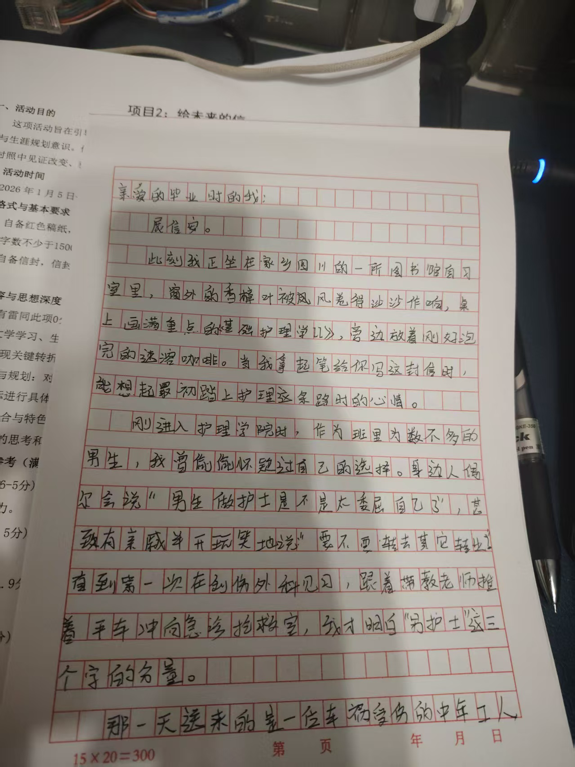 项目2：给未来的信
一、活动目的
这项活动旨在引
与生涯规划意识,
对照中见证改变、
活动时间
2026年1月5日
格式与基本要求
自备红色稿纸,
字数不少于150
自备信封, 信封
容与思想深度
有雷同此项0
现关键转折
与规划: 对
示进行具体
合与特色
的思考和
参考（满
5分）
亲爱的毕业时的我:
展信安。
此刻我正坐在家乡四川的一所图书馆自习
室里，窗外的香樟叶被风 得沙沙作响，桌
上画满重点的《基础护理学》，旁边放着刚好泡
完的速溶咖啡。当我拿起笔给你写这封信时，
总想起最初踏上护理这条路时的心情。
刚进入护理学院时，作为班里为数不多的
男生，我曾 怀疑过自己的选择。身边人偶
尔会说“男生做护士是不是太委屈自己了”，甚
至有亲戚半开玩笑地说“要不要转去其它专业?
直到第一次在创伤外科见习，跟着带教老师推
着平车冲向急诊抢救室，我才明白“男护士”这三
个字的分量。
那一天送来的是一位车祸受伤的中年工人
15×20=300
第 页
年 月 日